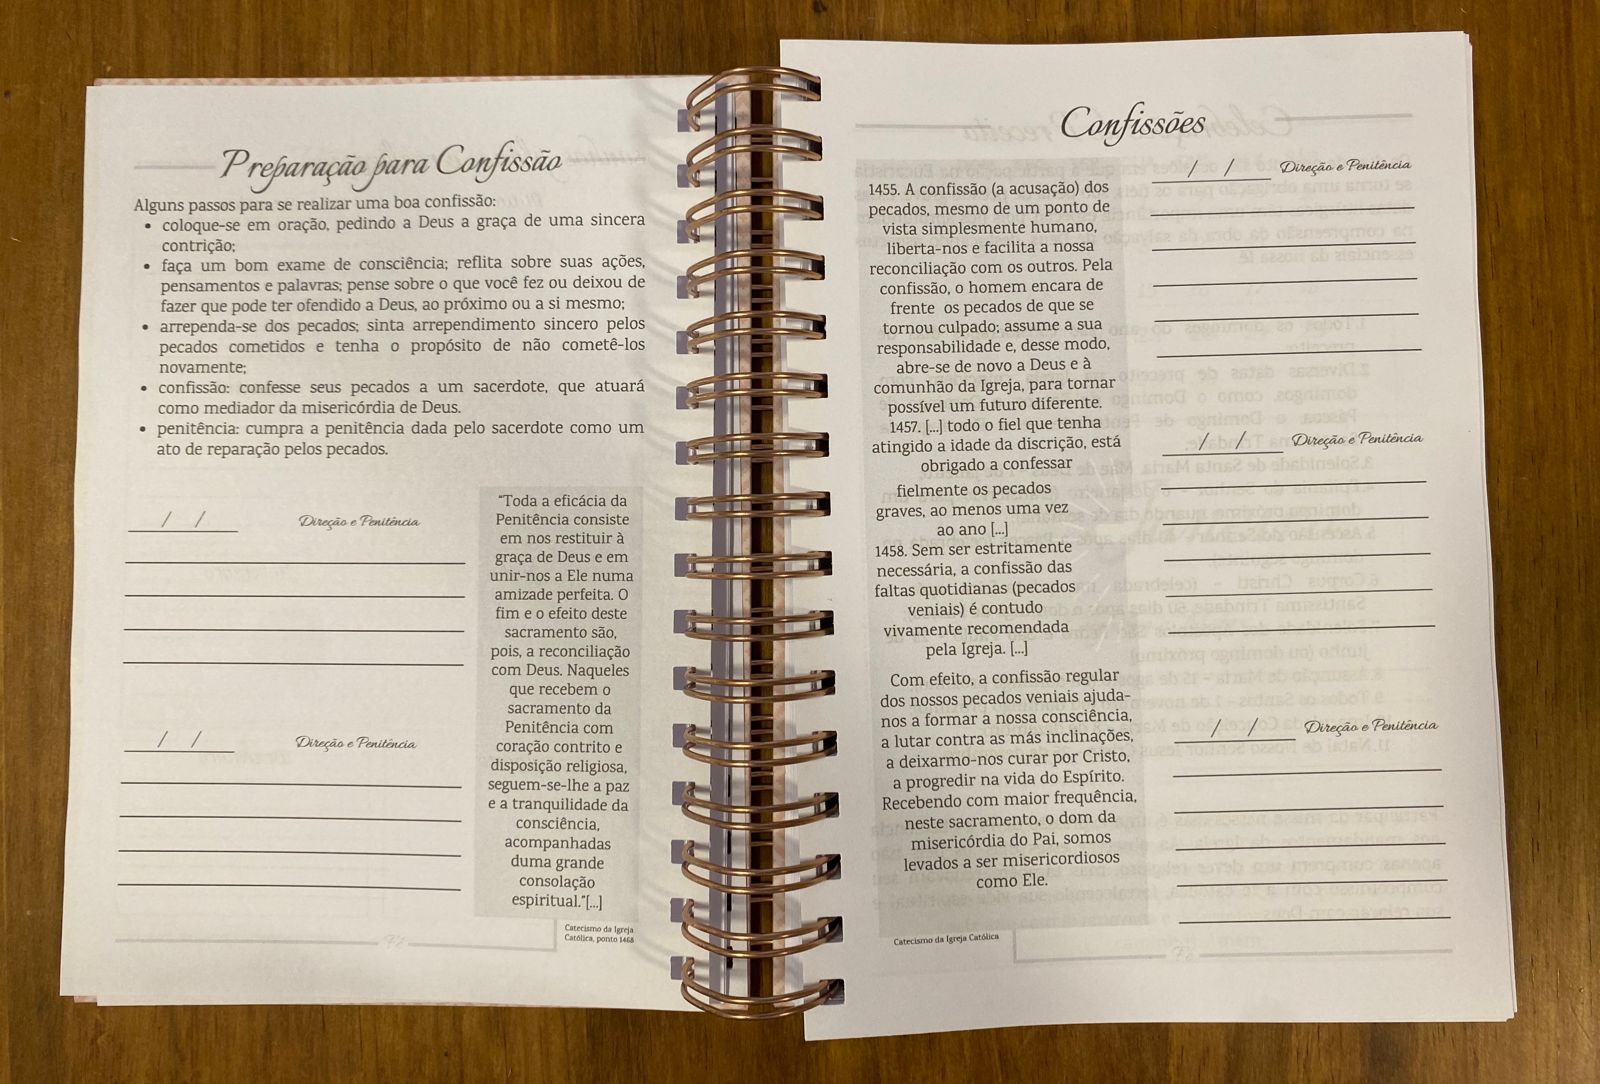 Preparação para Confissão
Alguns passos para se realizar uma boa confissão:
• coloque-se em oração, pedindo a Deus a graça de uma sincera
contrição;
• faça um bom exame de consciência; reflita sobre suas ações,
pensamentos e palavras; pense sobre o que você fez ou deixou de
fazer que pode ter ofendido a Deus, ao próximo ou a si mesmo;
• arrependa-se dos pecados; sinta arrependimento sincero pelos
pecados cometidos e tenha o propósito de não cometê-los
novamente;
• confissão: confesse seus pecados a um sacerdote, que atuará
como mediador da misericórdia de Deus.
• penitência: cumpra a penitência dada pelo sacerdote como um
ato de reparação pelos pecados.
/ / Direção e Penitência
/ / Direção e Penitência
"Toda a eficácia da
Penitência consiste
em nos restituir à
graça de Deus e em
unir-nos a Ele numa
amizade perfeita. O
fim e o efeito deste
sacramento são,
pois, a reconciliação
com Deus. Naqueles
que recebem o
sacramento da
Penitência com
coração contrito e
disposição religiosa,
seguem-se-lhe a paz
e a tranquilidade da
consciência,
acompanhadas
duma grande
consolação
espiritual."[...]
Catecismo da Igreja
Católica, ponto 1468
Confissões
1455. A confissão (a acusação) dos
pecados, mesmo de um ponto de
vista simplesmente humano,
liberta-nos e facilita a nossa
reconciliação com os outros. Pela
confissão, o homem encara de
frente os pecados de que se
tornou culpado; assume a sua
responsabilidade e, desse modo,
abre-se de novo a Deus e à
comunhão da Igreja, para tornar
possível um futuro diferente.
1457. [...] todo o fiel que tenha
atingido a idade da discrição, está
obrigado a confessar
fielmente os pecados
graves, ao menos uma vez
ao ano [...]
1458. Sem ser estritamente
necessária, a confissão das
faltas quotidianas (pecados
veniais) é contudo
vivamente recomendada
pela Igreja. [...]
Com efeito, a confissão regular
dos nossos pecados veniais ajuda-
nos a formar a nossa consciência,
a lutar contra as más inclinações,
a deixarmo-nos curar por Cristo,
a progredir na vida do Espírito.
Recebendo com maior frequência,
neste sacramento, o dom da
misericórdia do Pai, somos
levados a ser misericordiosos
como Ele.
Catecismo da Igreja Católica
/ / Direção e Penitência
/ / Direção e Penitência
/ / Direção e Penitência